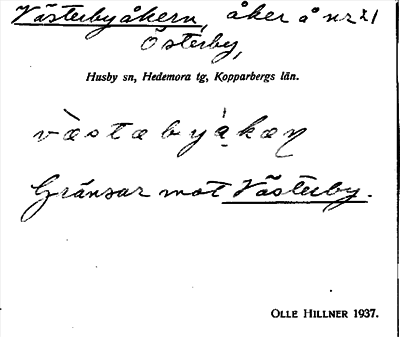 Västerbyåkern, åker å nr 21
Österby,
Husby sn, Hedemora tg, Kopparbergs län.
Gränsar mot Västerby.
OLLE HILLNER 1937.